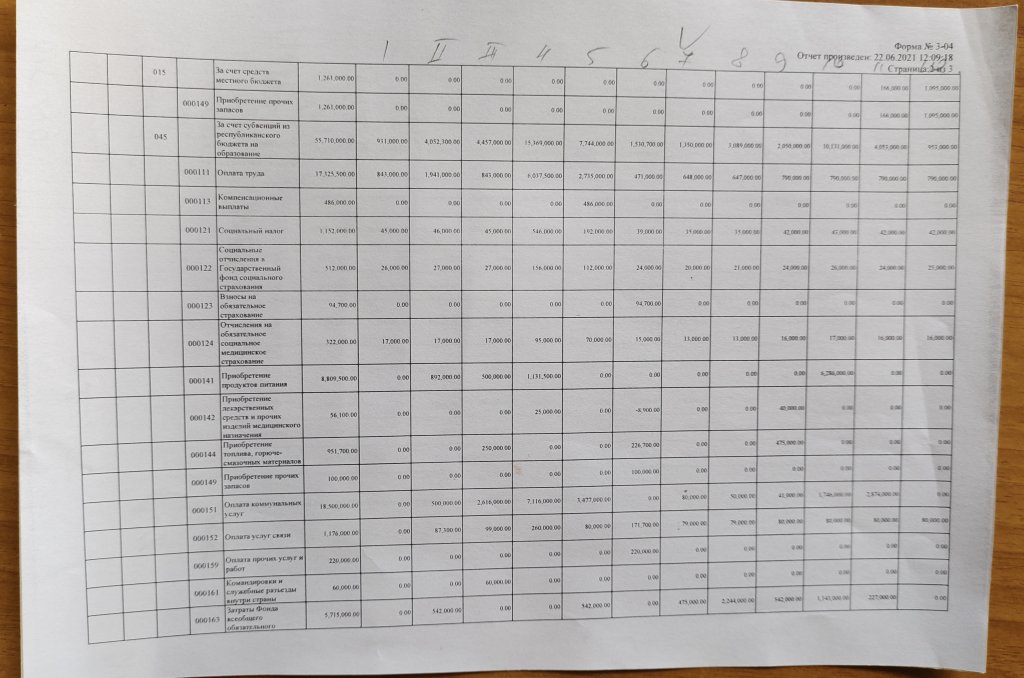 1 II III 4 5 6 7 8 9 10 11
V
Форма № 3-04
Отчет произведен: 22.06.2021 12:09:18
Страница 2 из 3
015 За счет средств местного бюджета 1,261,000.00 0.00 0.00 0.00 0.00 0.00 0.00 0.00 0.00 0.00 0.00 166,000.00 1,095,000.00
000149 Приобретение прочих запасов 1,261,000.00 0.00 0.00 0.00 0.00 0.00 0.00 0.00 0.00 0.00 0.00 166,000.00 1,095,000.00
045 За счет субвенций из республиканского бюджета на образование 55,710,000.00 931,000.00 4,052,300.00 4,457,000.00 15,369,000.00 7,744,000.00 1,530,700.00 1,350,000.00 3,089,000.00 2,050,000.00 10,131,000.00 4,053,000.00 953,000.00
000111 Оплата труда 17,325,500.00 843,000.00 1,941,000.00 843,000.00 6,037,500.00 2,735,000.00 471,000.00 648,000.00 647,000.00 790,000.00 790,000.00 790,000.00 790,000.00
000113 Компенсационные выплаты 486,000.00 0.00 0.00 0.00 0.00 486,000.00 0.00 0.00 0.00 0.00 0.00 0.00 0.00
000121 Социальный налог 1,152,000.00 45,000.00 46,000.00 45,000.00 546,000.00 192,000.00 39,000.00 35,000.00 35,000.00 42,000.00 43,000.00 42,000.00 42,000.00
000122 Социальные отчисления в Государственный фонд социального страхования 512,000.00 26,000.00 27,000.00 27,000.00 156,000.00 112,000.00 24,000.00 20,000.00 21,000.00 24,000.00 26,000.00 24,000.00 25,000.00
000123 Взносы на обязательное страхование 94,700.00 0.00 0.00 0.00 0.00 0.00 94,700.00 0.00 0.00 0.00 0.00 0.00 0.00
000124 Отчисления на обязательное социальное медицинское страхование 322,000.00 17,000.00 17,000.00 17,000.00 95,000.00 70,000.00 15,000.00 13,000.00 13,000.00 16,000.00 17,000.00 16,000.00 16,000.00
000141 Приобретение продуктов питания 8,809,500.00 0.00 892,000.00 500,000.00 1,131,500.00 0.00 0.00 0.00 0.00 0.00 6,286,000.00 0.00 0.00
000142 Приобретение лекарственных средств и прочих изделий медицинского назначения 56,100.00 0.00 0.00 0.00 25,000.00 0.00 -8,900.00 0.00 0.00 40,000.00 0.00 0.00 0.00
000144 Приобретение топлива, горюче-смазочных материалов 951,700.00 0.00 0.00 250,000.00 0.00 0.00 226,700.00 0.00 0.00 475,000.00 0.00 0.00 0.00
000149 Приобретение прочих запасов 100,000.00 0.00 0.00 0.00 0.00 0.00 100,000.00 0.00 0.00 0.00 0.00 0.00 0.00
000151 Оплата коммунальных услуг 18,500,000.00 0.00 500,000.00 2,616,000.00 7,116,000.00 3,477,000.00 0.00 80,000.00 50,000.00 41,000.00 1,746,000.00 2,874,000.00 0.00
000152 Оплата услуг связи 1,176,000.00 0.00 87,300.00 99,000.00 260,000.00 80,000.00 171,700.00 79,000.00 79,000.00 80,000.00 80,000.00 80,000.00 80,000.00
000159 Оплата прочих услуг и работ 220,000.00 0.00 0.00 0.00 0.00 0.00 220,000.00 0.00 0.00 0.00 0.00 0.00 0.00
000161 Командировки и служебные разъезды внутри страны 60,000.00 0.00 0.00 60,000.00 0.00 0.00 0.00 0.00 0.00 0.00 0.00 0.00 0.00
000163 Затраты Фонда всеобщего обязательного 5,715,000.00 0.00 542,000.00 0.00 0.00 542,000.00 0.00 475,000.00 2,244,000.00 542,000.00 1,143,000.00 227,000.00 0.00